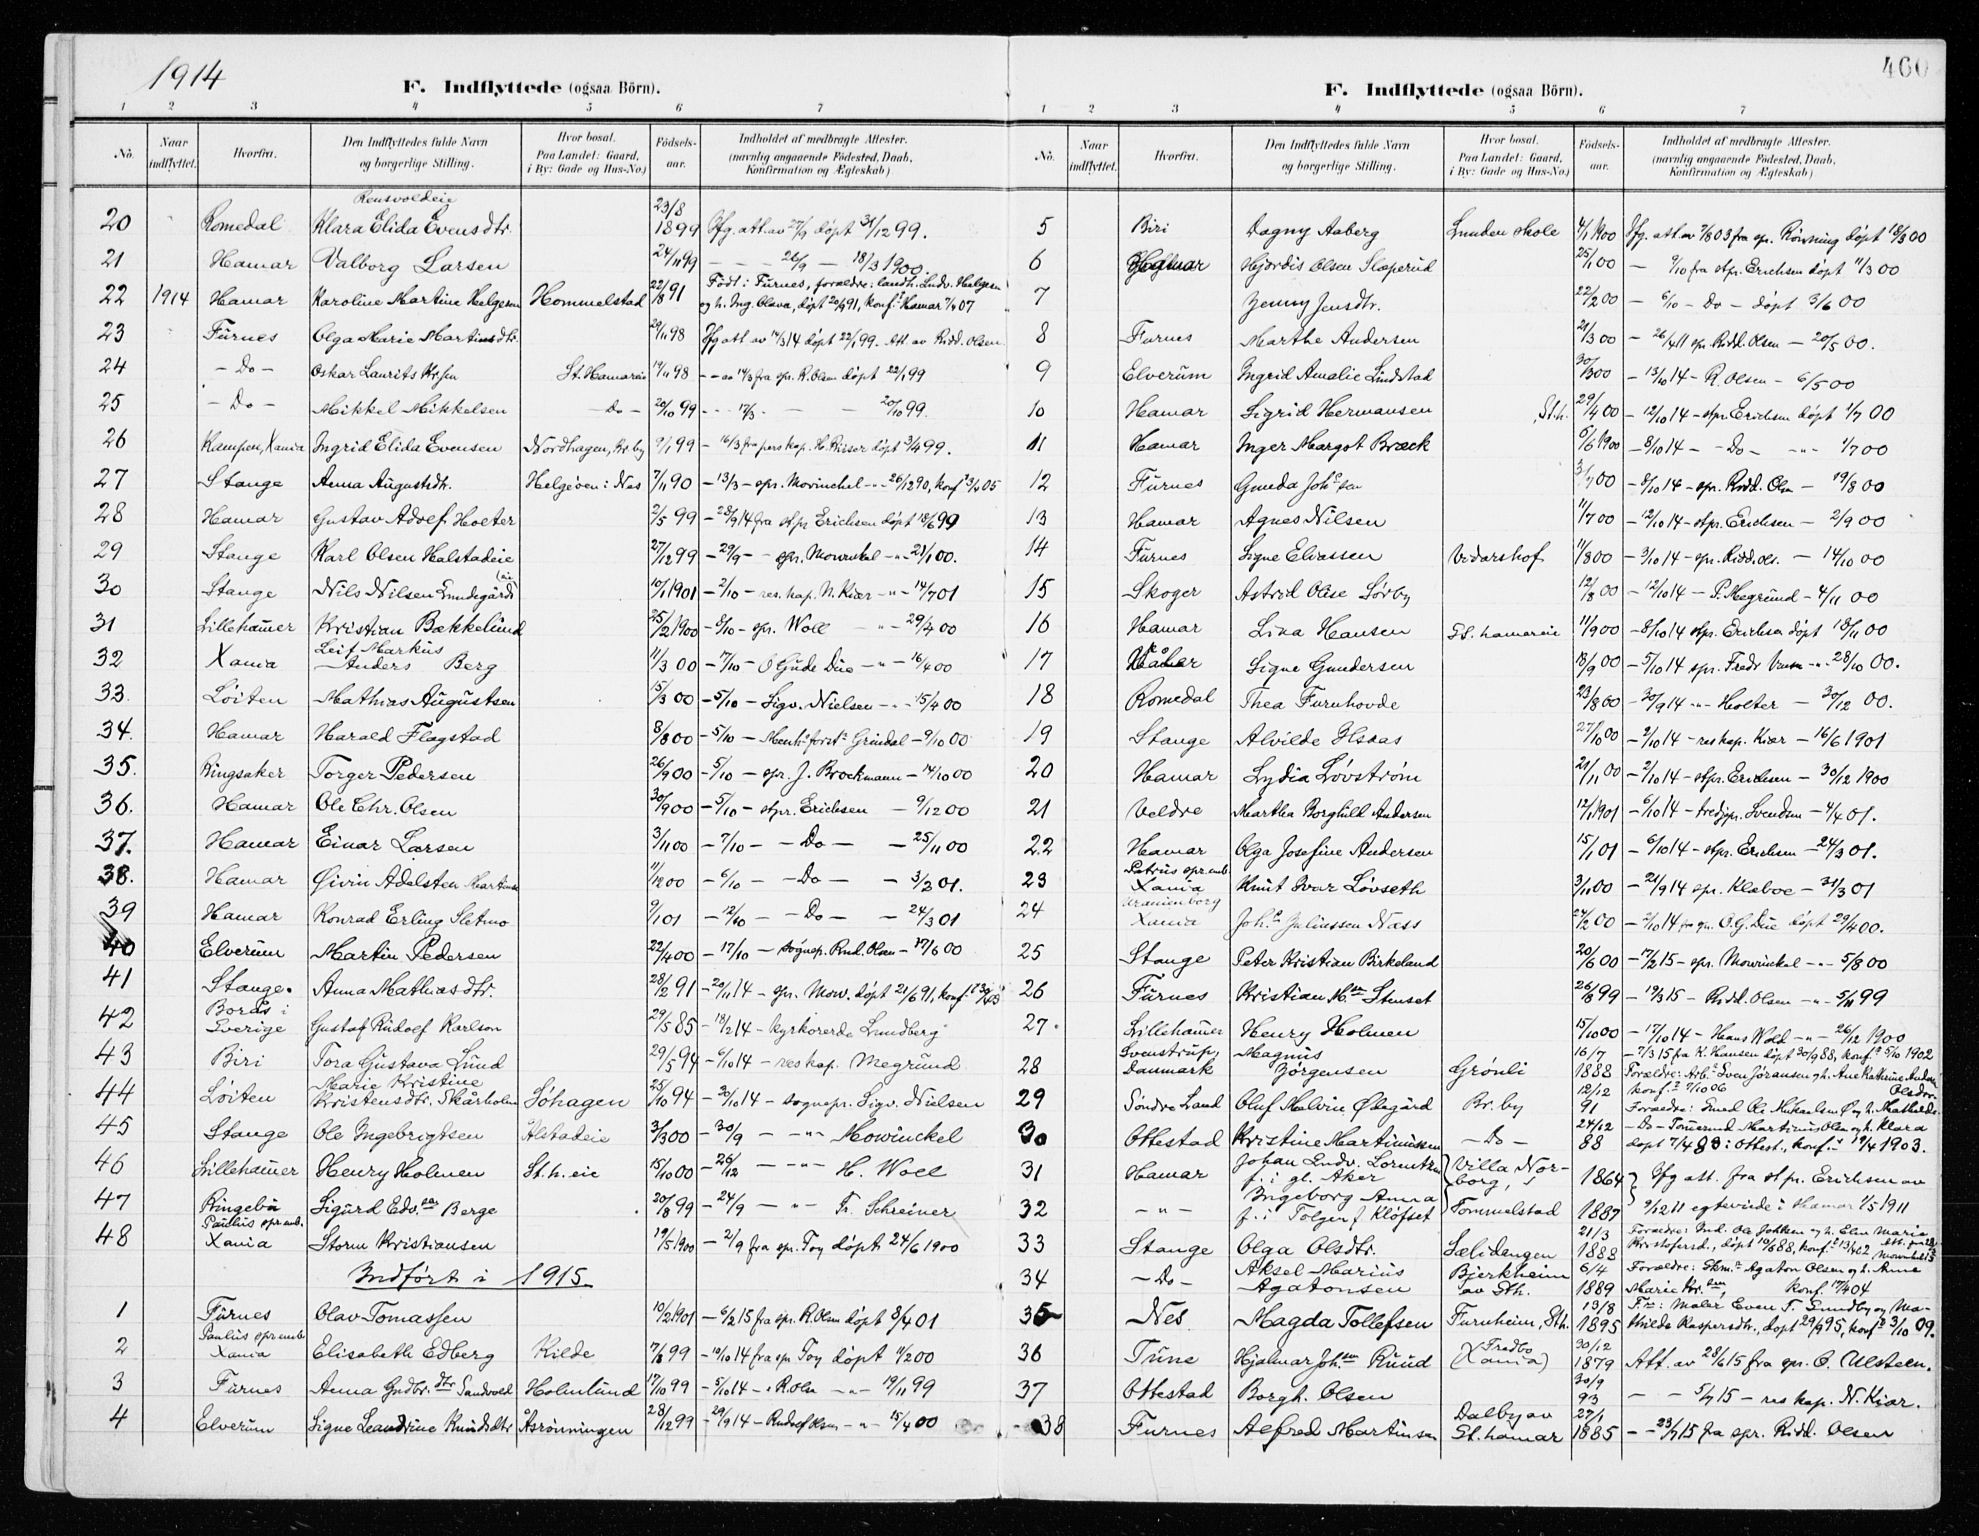 1914
F. Indflyttede (ogsaa Börn).
1 2 3 4 5 6 7
No. Naar indflyttet. Hvorfra. Den Indflyttedes fulde Navn og borgerlige Stilling. Hvor bosat. Paa Landet: Gaard, i By: Gade og Hus-No.) Födsels-aar. Indholdet af medbragte Attester. (navnlig angaaende Födested, Daab, Konfirmation og Ægteskab).
Rensvoldeie
20 Romedal Klara Elida Evensdtr. 23/8 1899 Ifg. att. av 27/9 døpt 31/12 99.
21 Hamar Valborg Larsen 24/11 99 - - - 26/9 - 18/3 1900.
22 1914 Hamar Karoline Martine Helgesen Hommelstad 22/8 91 Født i Furnes, forældre: landh. Ludv. Helgesen
og h. Ing. Olava, døpt 20/9 91, konf. Hamar 7/4 07
23 Furnes Olga Marie Martinsdtr. 29/11 98 Ifg att av 14/3 14 døpt 22/1 99. Att. av Ridd. Olsen
24 - Do - Oskar Laurits St. Hamareie 19/11 98 14/3 fra spr. R. Olsen døpt 22/1 99
25 - Do - Mikkel Mikkelsen - Do - 20/10 99 - - - 17/3 - - 20/10 99.
26 Kampen, Xania Ingrid Elida Evensen Nordhagen, Br. by 9/1 99 - 16/3 fra pers. kap. H. Risser døpt 3/4 99.
27 Stange Anna Augustdtr. Helgøen i Nes 7/11 90 - 13/3 - spr. Mowinckel - " - 26/12 90, konf. 3/4 05
28 Hamar Gustav Adolf Holter 2/5 99 - 28/9 14 fra stpr Erichsen døpt 18/6 99
29 Stange Karl Olsen Halstadeie 27/12 99 - 29/9 - - spr. Mowinckel - " - 21/1 00.
30 Stange Nils Nilsen Lundegård (eie) 10/1 1901 - 2/10 - res. kap. N. Kiær - " - 14/7 01
31 Lillehamer Kristian Bækkelund 25/2 1900 - 8/10 - spr. Woll - " - 29/4 00
32 Xania Leif Markus Anders Berg 11/3 00 - 17/10 - O Gude Due - " - 16/4 00
33. Løiten Mathias Augustsen 15/3 00 - 5/10 - Sigv. Nielsen - " - 15/4 00
34. Hamar Harald Flagstad 8/8 00 - 5/10 - Menh. forst. Grindal - 9/10 00
35. Ringsaker Torger Pedersen 26/9 00 - 5/10 - spr. J. Brockmann - 14/10 00
36. Hamar Ole Chr. Olsen 30/9 00 - 5/10 - stpr. Erichsen - 9/12 00
37. Hamar Einar Larsen 3/11 00 - 7/10 - - Do - - 25/11 00
38. Hamar Øivin Adelsten Martins 11/12 00 - 6/10 - - Do - - 3/2 01.
39 Hamar Konrad Erling Sletmo 9/1 01 - 12/10 - - Do - - 24/3 01
40 Elverum Martin Pedersen 22/4 00 - 17/10 - sognepr. Rud. Olsen - 17/6 00
41 Stange. Anna Mathiasdtr. 28/2 91 - 20/11 14 - spr. Mow. døpt 21/6 91, konf.
42 Borås i Sverige Gustaf Rudolf Karlson 29/5 85 - 18/2 14 - kyrkorerde Lundberg
43 Biri Tora Gustava Lund 29/5 94 - 6/10 14 - res kap. Megrund
44 Løiten Marie Kristine Kristensdtr. Skårholm Søhagen 25/10 94 - 30/10 14 - sognepr. Sigv. Nielsen
45 Stange Ole Ingebrigtsen Alstadeie 3/3 00 - 30/9 - - " - Mowinckel
46 Lillehamer Henry Holmen St. h. eie 15/10 00 - 26/12 - - " - H. Woll
47 Ringebu Sigurd Edv. sen Berge 20/8 99 - 24/9 - " - Fr. Schreiner
48 Paulus spr. emb. Xania Storm Kristiansen 19/5 1900 - 2/9 fra spr. Foy døpt 24/6 1900
Indført i 1915
1 Furnes Olav Tomassen 10/2 1901 - 6/2 15 fra spr. R. Olsen døpt 8/4 01
2 Paulus spr emb Xania Elisabeth Edberg Kilde 7/8 99 - 10/10 14 fra spr Foy døpt 11/2 00
3 Furnes Anna Gudbr. dtr Sandvold Holmlund 17/10 99 - 5/10 14 - " R. Olsen - " - 19/11 99
4 Elverum Signe Leandrine Knudsdtr Åsrønningen 28/12 99 - 29/9 14 - Rudolf Olsen - " - 15/4 00
400
F. Indflyttede (ogsaa Börn).
1 2 3 4 5 6 7
No. Naar indflyttet. Hvorfra. Den Indflyttedes fulde Navn og borgerlige Stilling. Hvor bosat. Paa Landet: Gaard, i By: Gade og Hus-No.) Födsels-aar. Indholdet af medbragte Attester. (navnlig angaaende Födested, Daab, Konfirmation og Ægteskab).
5 Biri Dagny Aaberg Lunden skole 4/1 1900 Ifg. att. av 7/8 03 fra spr. Rønning døpt 18/3 00
6 Hamar Hjørdis Olsen Slæperud 25/1 00 - 9/10 fra stpr. Erichsen døpt 11/3 00
7 Jenny Jensdtr. 22/2 00 - 6/10 - Do - døpt 3/6 00
8 Furnes Marthe Andersen 21/3 00 - 26/4 11 spr. Ridd. Olsen - 20/5 00.
9 Elverum Ingrid Amalie Lindstad 30/3 00 - 13/10 14 - R. Olsen - 6/5 00
10 Hamar Sigrid Hermansen St. h. 29/4 00 - 12/10 14 - stpr. Erichsen døpt 1/7 00
11 Hamar Inger Margot Bræck 6/6 1900 - 8/10 14 - - Do - - " - 1/7 00
12 Furnes Gunda Joh. sen 3/7 00 - 8/10 14 - spr. Ridd. Olsen - 19/8 00
13 Hamar Agnes Nilsen 11/7 00 - 12/10 14 - stpr. Erichsen - 2/9 00
14 Furnes Signe Eliassen Vidarshof 11/8 00 - 3/10 14 - spr. Ridd. Ols. - 14/10 00
15 Skoger Astrid Olise Sørby 12/8 00 - 12/10 14 - P. Megrund - 4/11 00
16 Hamar Lina Hansen St. hamareie 11/9 00 - 8/10 14 stpr. Erichsen døpt 18/11 00
17 Signe Gundersen 18/9 00 - 5/10 14 spr. Fredr - " - 28/10 00.
18 Romedal Thea Furuhovde 23/8 00 - 30/9 14 - " - Holter - 30/12 00.
19 Stange Alvilde Ilsaas 27/10 00 - 2/10 14 - res kap. Kiær - 16/6 1901
20 Hamar Lydia Løvstrøm 21/11 00 - 2/10 14 - stpr. Erichsen - 30/12 1900
21 Veldre Martha Borghild Andersen 12/1 1901 - 6/10 14 - tredjepr. Svendsen - 4/4 01.
22 Hamar Olga Josefine Andersen 15/1 01 - 6/10 14 - stpr. Erichsen - 24/3 01.
23 Petrus spr. emb. Xania Knut Ivar Løvseth 3/11 00 - 21/9 14 spr. Klaboe - 31/3 01
24 Uranienborg Xania Joh. Juliussen Næss 24/2 00 - 2/10 14 fra spr. O. G. Due døpt 29/4 00.
25 Stange Peter Kristian Birkeland 20/6 00 - 17/2 15 - spr. Mowinckel - " - 5/8 00
26 Furnes Kristian M. sen Stenset 26/8 99 - 19/3 15 - Ridd. Olsen - " - 5/11 99
27. Lillehamer Henry Holmen 15/10 00 - 17/10 14 - Hans Wold - " - 26/12 1900
28 Svenstrup, Danmark Magnus Jörgensen Grønli 16/7 1888 - 7/3 15 fra K. Hansen døpt 30/9 88, konf. 5/10 1902
Forældre: Arb. Sven Jöransen og h. Ane Kathrine Andersen
29 Søndre Land Oluf Malvin Ødegård Br. by 12/12 91 konf. 7/10 06 Olsdtr.
Forældre: Smed Ole Mikaelsen Ø og h. Mathilde
30 Ottestad Kristine Martinussen - Do - 24/12 88 - Do - Tømmermd Martinus Olsen og h. Klara
døpt 7/4 89 i Ottest., konf. 19/4 1903.
31 Hamar Johan Ludv. Lorentzen f. i gl. Aker Villa Norborg, 1864 Ifg att. fra stpr. Erichsen av
32 - " - Ingeborg Anna f. i Tolgen f. Kløfset Tommelstad 1887 9/12 11 egteviede i Hamar 1/5 1911
33 Stange Olga Olsdtr. Sælidengen 21/3 1888 Forældre: Ind. Ole Jokken og h. Elen Marie
Kristofersd., døpt 10/6 88, konf. 13/4 02 Mowinckel
34 - Do - Aksel Marius Agatonsen Bjerkheim av Sth. 6/4 1889 Forældre: Skm. Agaton Olsen og h. Anne
Marie Kr. sen, konf. 17/4 04
35 Nes Magda Tollefsen Furuheim, Sth. 13/8 1895 F.: Maler Even T. Sundby og Ma-
thilde Kaspersdtr., døpt 29/9 95, konf. 3/10 09.
36 Tune Hjalmar Joh. sen Ruud Fredbo (Xania) 30/12 1879 Att. av 28/6 15 fra spr. O. Ulsteen.
37 Ottestad Borgh. Olsen 30/9 93 - - 5/7 15 - res kap. N. Kiær.
38 Furnes Alfred Martinsen Dalby av St. hamar 27/1 1885 - - 23/7 15 fra spr. Ridd. Olsen